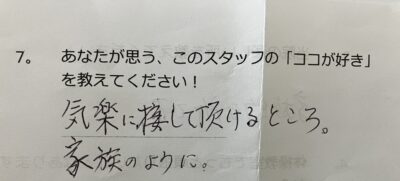 7。 あなたが思う、このスタッフの「ココが好き」
を教えてください！
気楽に接して頂けるところ。
家族のように。